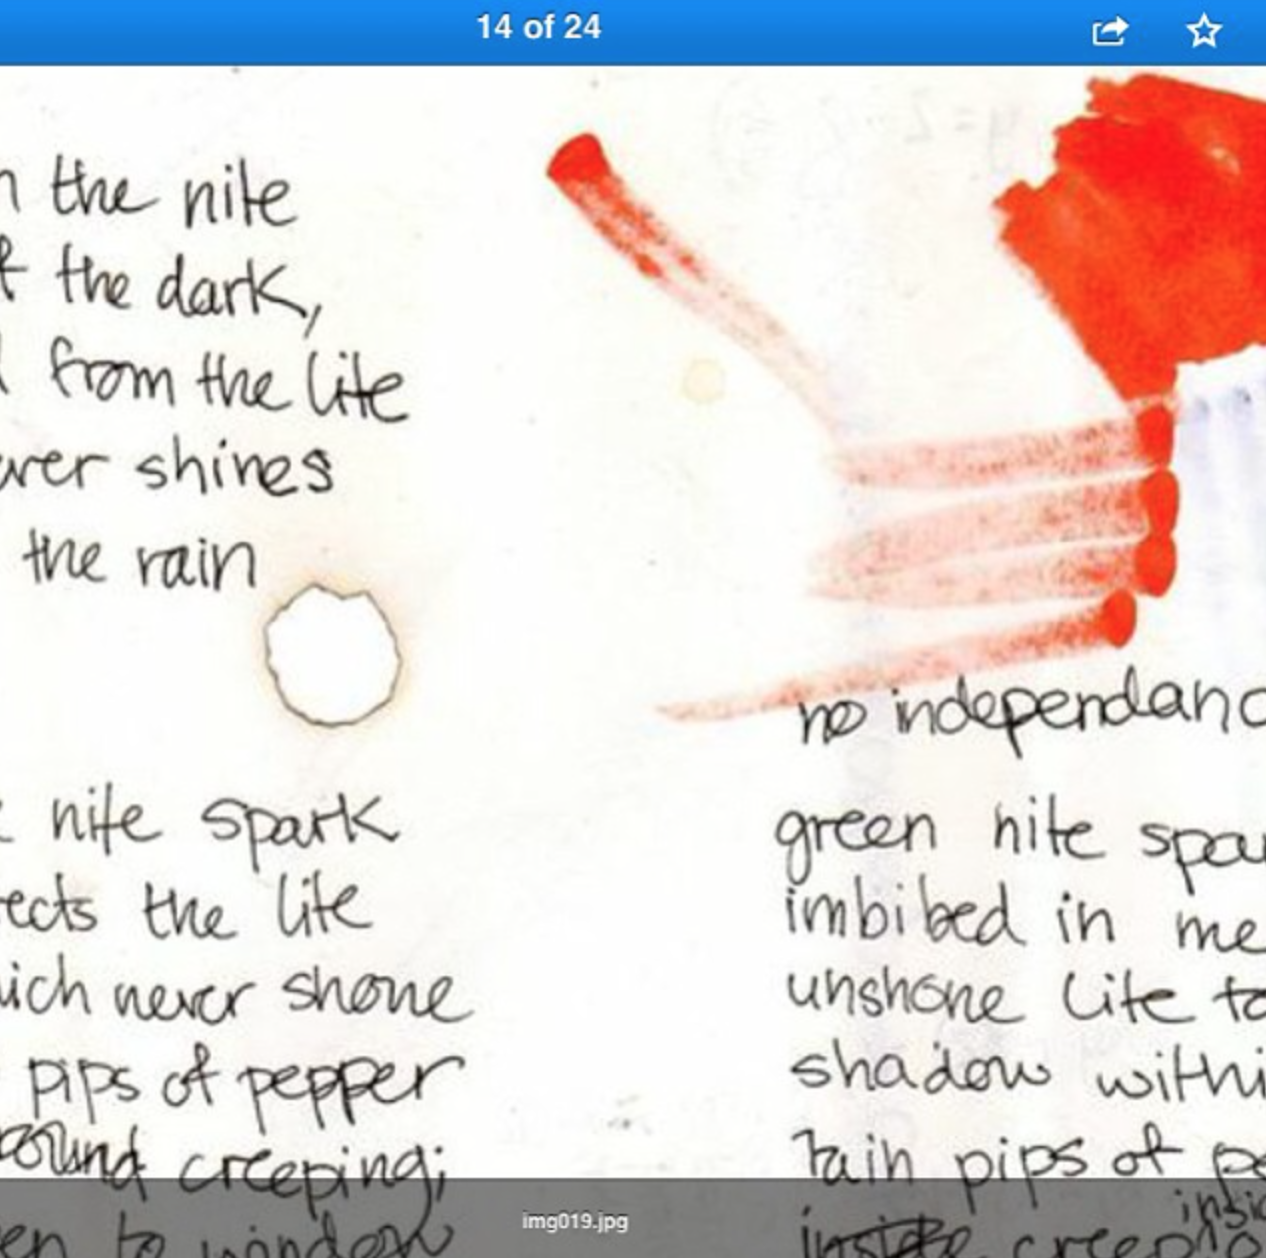 14 of 24
the nite
the dark,
from the lite
shines
the rain
nite spark
the lite
never shone
pips of pepper
creeping;
to window
no independanc
green nite spar
imbibed in me
unshone lite to
shadow withi
rain pips of pe
insid
inside creeping
img019.jpg